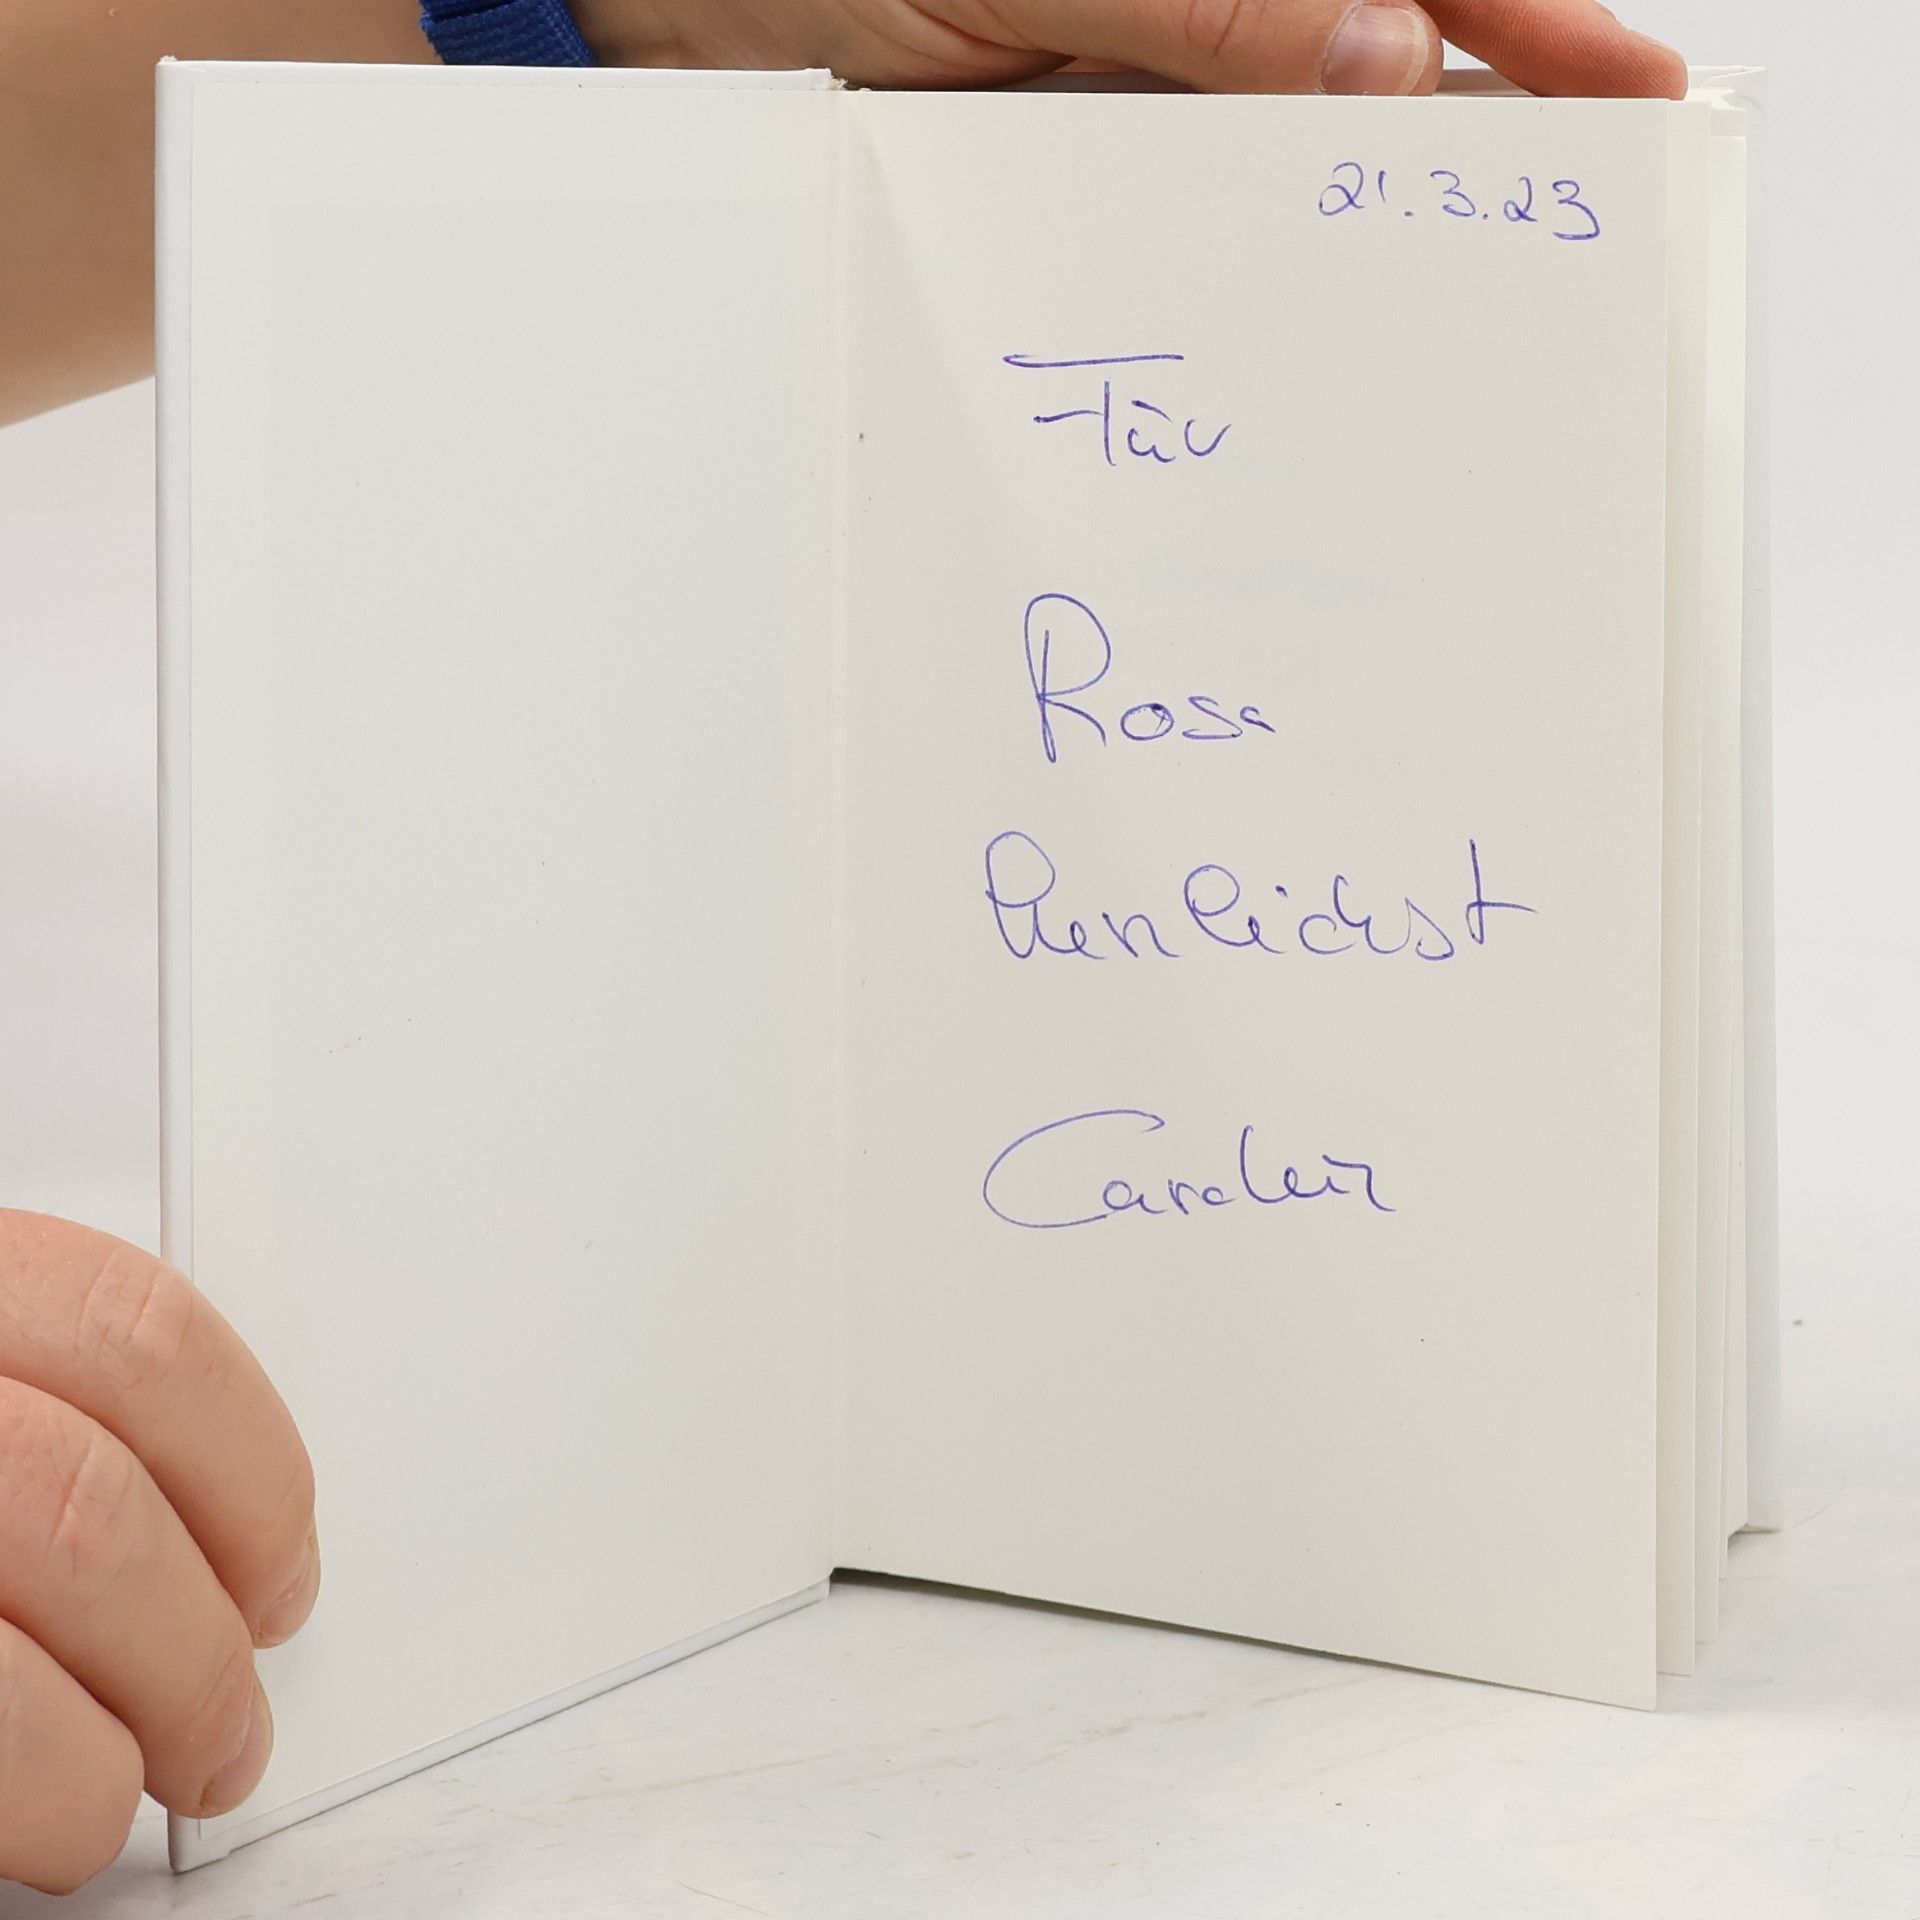 21.3.23
Für
Rosa
herzlichst
Carolin